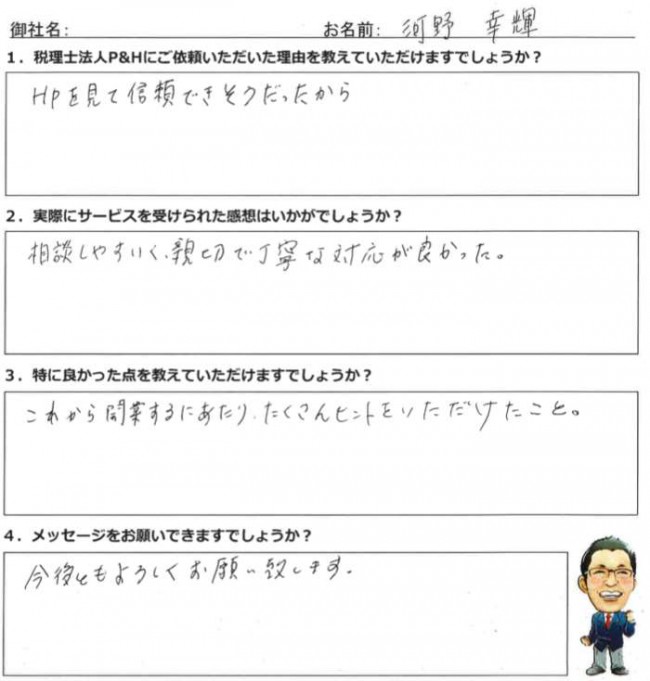 御社名： お名前： 河野 幸輝
1．税理士法人P&Hにご依頼いただいた理由を教えていただけますでしょうか？
HPを見て信頼できそうだったから
2．実際にサービスを受けられた感想はいかがでしょうか？
相談しやすいく、親切で丁寧な対応が良かった。
3．特に良かった点を教えていただけますでしょうか？
これから開業するにあたり、たくさんヒントをいただけたこと。
4．メッセージをお願いできますでしょうか？
今後ともよろしくお願い致します。